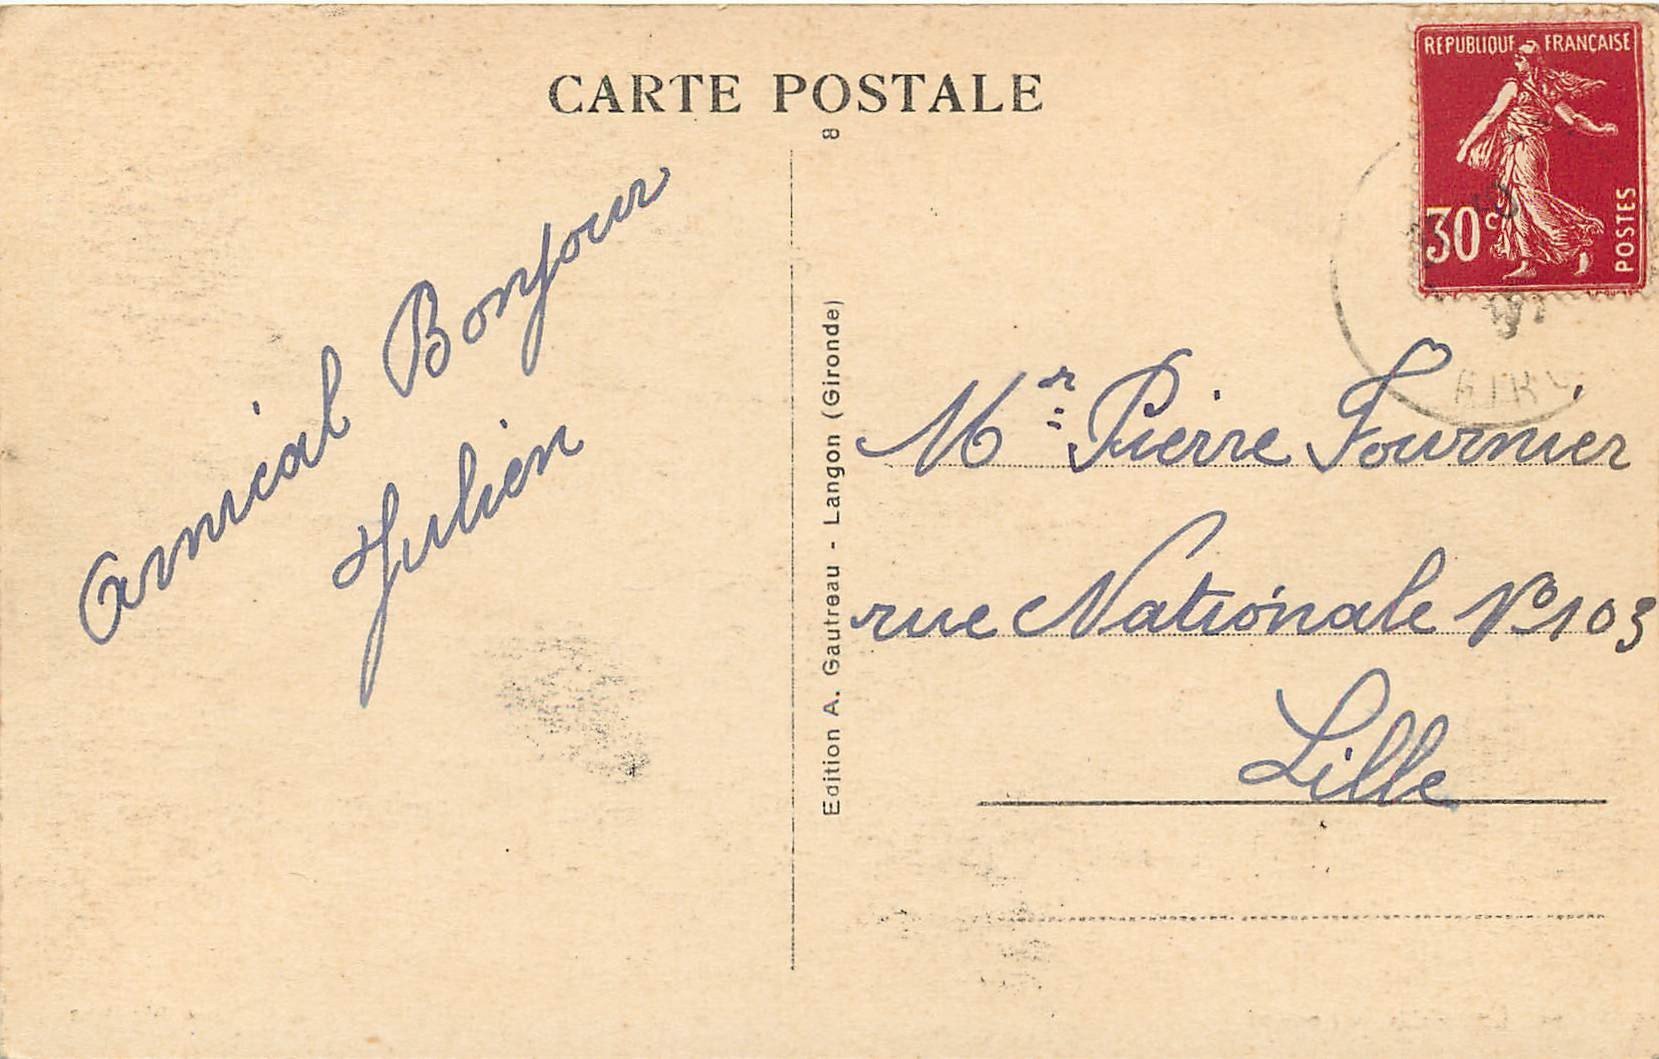 CARTE POSTALE
8
REPUBLIQUE FRANÇAISE
30c
POSTES
Amical Bonjour
Julien
Edition A. Gautreau - Langon (Gironde)
Mr Pierre Fournier
rue Nationale No 103
Lille